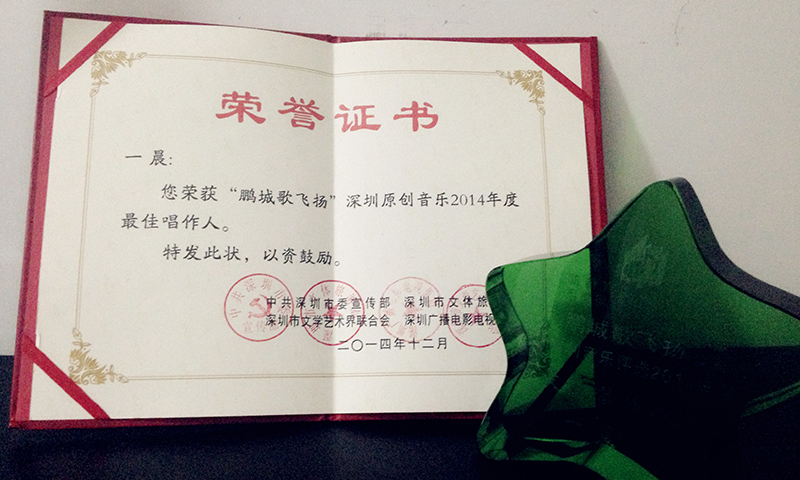 荣誉证书
一晨:
您荣获“鹏城歌飞扬”深圳原创音乐2014年度
最佳唱作人。
特发此状，以资鼓励。
中共深圳市委宣传部 深圳市文体旅
深圳市文学艺术界联合会 深圳广播电影电视
二〇一四年十二月
城歌飞扬